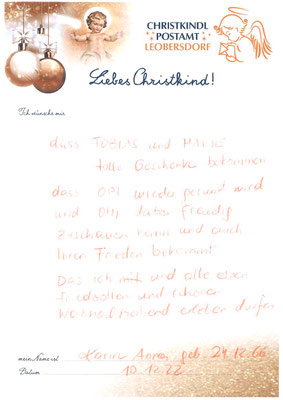 CHRISTKINDL
POSTAMT
LEOBERSDORF
Liebes Christkind!
Ich wünsche mir
dass TOBIAS und MARIE
tolle Geschenke bekommen
dass OPI wieder gesund wird
und OMI dabei freudig
zuschauen kann und auch
Ihren Frieden bekommt
Das ich mit und alle einen
friedvollen und schönen
Weihnachtsabend erleben dürfen
mein Name ist Karin Anna, geb. 24.12.66
Datum 10.12.22